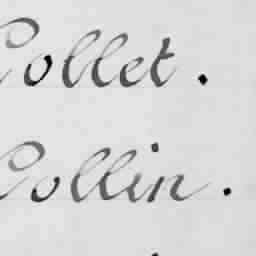 Collet.
Collin.